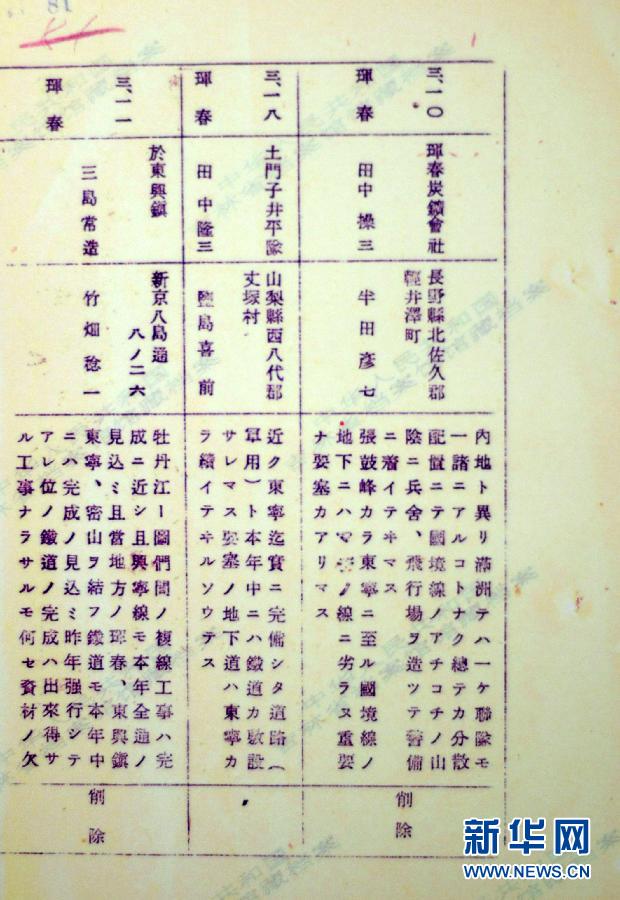 81
三、一〇
琿春
琿春炭鑛會社
田中操三
長野縣北佐久郡
輕井澤町
半田彦七
內地ト異リ滿洲テハ一ケ聯隊モ
一諸ニアルコトナク總テカ分散
配置ニテ國境線ノアチコチノ山
陰ニ兵舍、飛行場ヲ造ツテ警備
ニ着イテヰマス
張鼓峰カラ東寧ニ至ル國境線ノ
地下ニハマ ノ線ニ劣ラヌ重要
ナ要塞カアリマス
削除
三、一八
琿春
土門子井平隊
田中隆三
山梨縣西八代郡
丈塚村
鹽島喜前
近ク東寧迄實ニ完備シタ道路（
軍用）ト本年中ニハ鐵道カ敷設
サレマス要塞ノ地下道ハ東寧カ
ラ續イテヰルソウテス
〃
三、一一
琿春
於東興鎭
三島常造
新京八島通
八ノ二六
竹畑稔一
牡丹江ー圖們間ノ複線工事ハ完
成ニ近シ且興寧線モ本年全通ノ
見込ミ且當地方ノ琿春、東興鎭
東寧、密山ヲ結フ鐵道モ本年中
ニハ完成ノ見込ミ昨年强行シテ
アレ位ノ鐵道ノ完成ハ出來得サ
ル工事ナラサルモ何セ資材ノ欠
削除
新华网
WWW.NEWS.CN